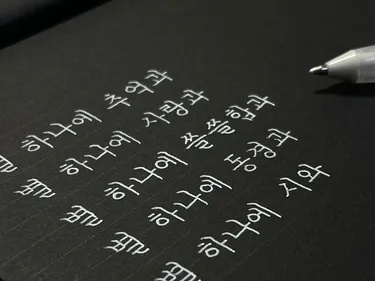 별 하나에 추억과
별 하나에 사랑과
별 하나에 쓸쓸함과
별 하나에 동경과
별 하나에 시와